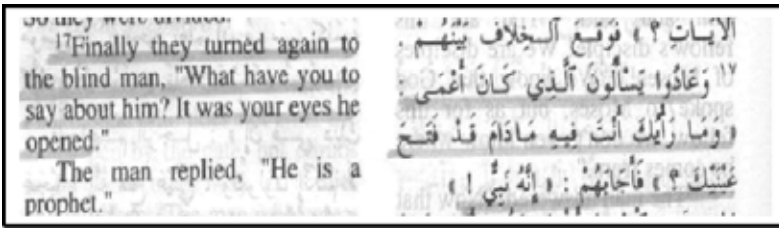 So they were divided.
17Finally they turned again to
the blind man, "What have you to
say about him? It was your eyes he
opened."
The man replied, "He is a
prophet."
الآيَاتِ؟» فَوَقَعَ ٱلْخِلَافُ بَيْنَهُمْ.
١٧ وَعَادُوا يَسْأَلُونَ ٱلَّذِي كَانَ أَعْمَى:
«وَمَا رَأْيُكَ أَنْتَ فِيهِ مَادَامَ قَدْ فَتَحَ
عَيْنَيْكَ؟» فَأَجَابَهُمْ: «إِنَّهُ نَبِيٌّ!»